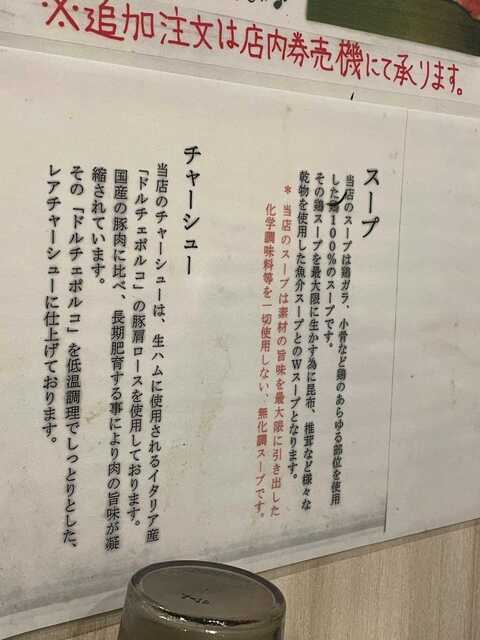 ※追加注文は店内券売機にて承ります。
スープ
当店のスープは鶏ガラ、小骨など鶏のあらゆる部位を使用
した鶏100%のスープです。
その鶏スープを最大限に生かす為に昆布、椎茸など様々な
乾物を使用した魚介スープとのWスープとなります。
*当店のスープは素材の旨味を最大限に引き出した
化学調味料等を一切使用しない、無化調スープです。
チャーシュー
当店のチャーシューは、生ハムに使用されるイタリア産
「ドルチェポルコ」の豚肩ロースを使用しております。
国産の豚肉に比べ、長期肥育する事により肉の旨味が凝
縮されています。
その「ドルチェポルコ」を低温調理でしっとりとした、
レアチャーシューに仕上げております。